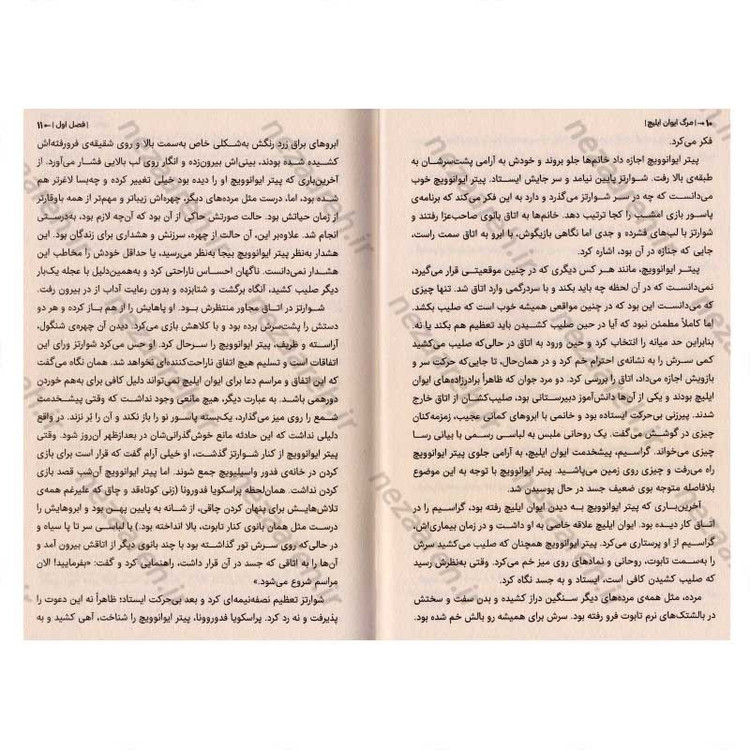 ۱۰ → | مرگ ایوان ایلیچ |
فکر می‌کرد.
پیتر ایوانوویچ اجازه داد خانم‌ها جلو بروند و خودش به آرامی پشت‌سرشان به
طبقه‌ی بالا رفت. شوارتز پایین نیامد و سر جایش ایستاد. پیتر ایوانوویچ خوب
می‌دانست که چه در سر شوارتز می‌گذرد و دارد به این فکر می‌کند که برنامه‌ی
پاسور بازی امشب را کجا ترتیب دهد. خانم‌ها به اتاق بانوی صاحب‌عزا رفتند و
شوارتز با لب‌های فشرده و جدی اما نگاهی بازیگوش، با ابرو به اتاق سمت راست،
جایی که جنازه در آن بود، اشاره کرد.
پیتر ایوانوویچ، مانند هر کس دیگری که در چنین موقعیتی قرار می‌گیرد،
نمی‌دانست که در آن لحظه چه باید بکند و با سردرگمی وارد اتاق شد. تنها چیزی
که می‌دانست این بود که در چنین مواقعی همیشه خوب است که صلیب بکشد.
اما کاملاً مطمئن نبود که آیا در حین صلیب کشیدن باید تعظیم هم بکند یا نه.
بنابراین حد میانه را انتخاب کرد و حین ورود به اتاق در حالی‌که صلیب می‌کشید
کمی سرش را به نشانه‌ی احترام خم کرد و در همان‌حال، تا جایی‌که حرکت سر و
بازویش اجازه می‌داد، اتاق را بررسی کرد. دو مرد جوان که ظاهراً برادرزاده‌های ایوان
ایلیچ بودند و یکی از آن‌ها دانش‌آموز دبیرستانی بود، صلیب‌کشان از اتاق خارج
شدند. پیرزنی بی‌حرکت ایستاده بود و خانمی با ابروهای کمانی عجیب، زمزمه‌کنان
چیزی در گوشش می‌گفت. یک روحانی ملبس به لباسی رسمی با بیانی رسا
چیزی می‌خواند. گراسیم، پیشخدمت ایوان ایلیچ، به آرامی جلوی پیتر ایوانوویچ
راه می‌رفت و چیزی روی زمین می‌پاشید. پیتر ایوانوویچ با توجه به این موضوع
بلافاصله متوجه بوی ضعیف جسد در حال پوسیدن شد.
آخرین‌باری که پیتر ایوانوویچ به دیدن ایوان ایلیچ رفته بود، گراسیم را در
اتاق کار دیده بود. ایوان ایلیچ علاقه خاصی به او داشت و در زمان بیماری‌اش،
گراسیم از او پرستاری می‌کرد. پیتر ایوانوویچ همچنان که صلیب می‌کشید سرش
را به‌سمت تابوت، روحانی و نمادهای روی میز خم می‌کرد. وقتی به‌نظرش رسید
که صلیب کشیدن کافی است، ایستاد و به جسد نگاه کرد.
مرده، مثل همه‌ی مرده‌های دیگر سنگین دراز کشیده و بدن سفت و سختش
در بالشتک‌های نرم تابوت فرو رفته بود. سرش برای همیشه رو بالش خم شده بود.
| فصل اول | ← ۱۱
ابروهای براق زرد رنگش به‌شکلی خاص به‌سمت بالا و روی شقیقه‌ی فرورفته‌اش
کشیده شده بودند، بینی‌اش بیرون‌زده و انگار روی لب بالایی فشار می‌آورد. از
آخرین‌باری که پیتر ایوانوویچ او را دیده بود خیلی تغییر کرده و چه‌بسا لاغرتر هم
شده بود، اما، درست مثل مرده‌های دیگر، چهره‌اش زیباتر و مهم‌تر از همه باوقارتر
از زمان حیاتش بود. حالت صورتش حاکی از آن بود که آن‌چه لازم بود، به‌درستی
انجام شد. علاوه‌بر این، آن حالت از چهره، سرزنش و هشداری برای زندگان بود. این
هشدار به‌نظر پیتر ایوانوویچ بیجا به‌نظر می‌رسید، یا حداقل خودش را مخاطب این
هشدار نمی‌دانست. ناگهان احساس ناراحتی کرد و به‌همین‌دلیل با عجله یک‌بار
دیگر صلیب کشید، آنگاه برگشت و شتابزده و بدون رعایت آداب از در بیرون رفت.
شوارتز در اتاق مجاور منتظرش بود. او پاهایش را از هم باز کرده و هر دو
دستش را پشت‌سرش برده بود و با کلاهش بازی می‌کرد. دیدن آن چهره‌ی شنگول،
آراسته و ظریف، پیتر ایوانوویچ را سرحال کرد. او حس می‌کرد شوارتز ورای این
اتفاقات است و تسلیم هیچ اتفاق ناراحت‌کننده‌ای نخواهد شد. همان نگاه می‌گفت
که این اتفاق و مراسم دعا برای ایوان ایلیچ نمی‌تواند دلیل کافی برای به‌هم خوردن
دورهمی باشد. به عبارت دیگر، هیچ مانعی وجود نداشت که وقتی پیشخدمت
شمع را روی میز می‌گذارد، یک‌بسته پاسور نو را باز نکند و آن را بُر نزند. در واقع
دلیلی نداشت که این حادثه مانع خوش‌گذرانی‌شان در بعدازظهر آن‌روز شود. وقتی
پیتر ایوانوویچ از کنار شوارتز گذشت، او خیلی آرام گفت که قرار است برای بازی
کردن در خانه‌ی فدور واسیلیویچ جمع شوند. اما پیتر ایوانوویچ آن‌شب قصد بازی
کردن نداشت. همان‌لحظه پراسکویا فدوروونا (زنی کوتاه‌قد و چاق که علیرغم همه‌ی
تلاش‌هایش برای پنهان کردن چاقی، از شانه به پایین پهن بود و ابروهایش را
درست مثل همان بانوی کنار تابوت، بالا انداخته بود.) با لباسی سر تا پا سیاه و
در حالی‌که روی سرش تور گذاشته بود با چند بانوی دیگر از اتاقش بیرون آمد و
آن‌ها را به اتاقی که جسد در آن قرار داشت، راهنمایی کرد و گفت: «بفرمایید! الان
مراسم شروع می‌شود.»
شوارتز تعظیم نصفه‌نیمه‌ای کرد و بعد بی‌حرکت ایستاد؛ ظاهراً نه این دعوت را
پذیرفت و نه رد کرد. پراسکویا فدوروونا، پیتر ایوانوویچ را شناخت، آهی کشید و به
nezareh.ir